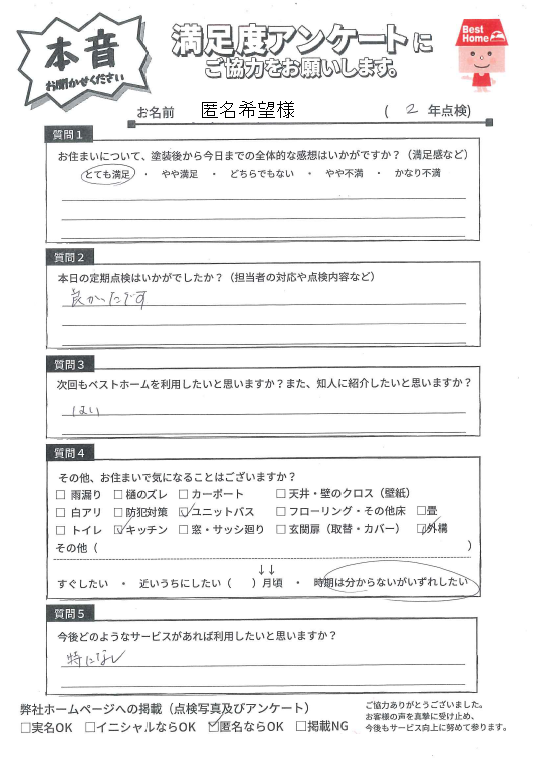 本音
お聞かせください
満足度アンケートに
ご協力をお願いします。
Best Home
お名前 匿名希望様 ( 2 年点検)
質問1
お住まいについて、塗装後から今日までの全体的な感想はいかがですか？（満足感など）
とても満足 ・ やや満足 ・ どちらでもない ・ やや不満 ・ かなり不満
質問2
本日の定期点検はいかがでしたか？（担当者の対応や点検内容など）
良かったです
質問3
次回もベストホームを利用したいと思いますか？また、知人に紹介したいと思いますか？
はい
質問4
その他、お住まいで気になることはございますか？
□ 雨漏り □ 樋のズレ □ カーポート □ 天井・壁のクロス（壁紙）
□ 白アリ □ 防犯対策 ☑ ユニットバス □ フローリング・その他床 □ 畳
□ トイレ ☑ キッチン □ 窓・サッシ廻り □ 玄関扉（取替・カバー） ☑ 外構
その他（ ）
↓↓
すぐしたい ・ 近いうちにしたい（ ）月頃 ・ 時期は分からないがいずれしたい
質問5
今後どのようなサービスがあれば利用したいと思いますか？
特になし
弊社ホームページへの掲載（点検写真及びアンケート）
□実名OK □イニシャルならOK ☑匿名ならOK □掲載NG
ご協力ありがとうございました。
お客様の声を真摯に受け止め、
今後もサービス向上に努めて参ります。